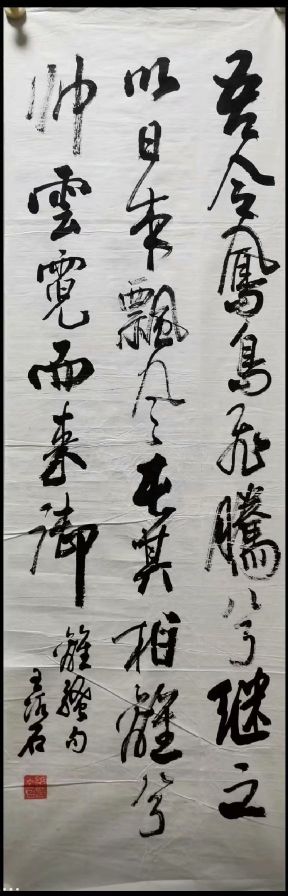 吾令鳳鳥飛騰兮继之
以日夜飄風屯其相離兮
帅雲霓而来御
離騷句
王石